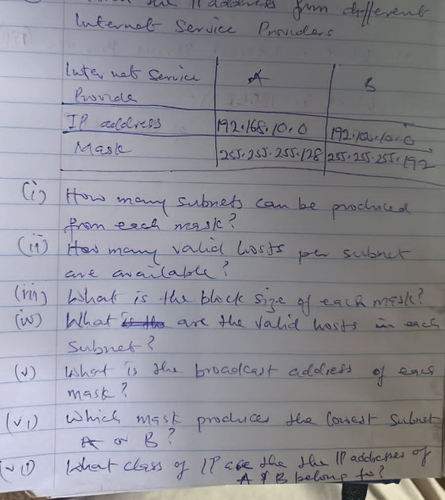 the IP address from different
Internet Service Providers
Internet Service A B
Provide
IP address 192.168.10.0 192.10.10.0
Mask 255.255.255.128 255.255.255.192
(i) How many subnets can be produced
from each mask?
(ii) How many valid hosts per subnet
are available?
(iii) What is the block size of each mask?
(iv) What are the valid hosts in each
subnet?
(v) What is the broadcast address of each
mask?
(vi) Which mask produces the lowest subnet
A or B?
(vii) What class of IP are the the IP addresses of
A & B belong to?